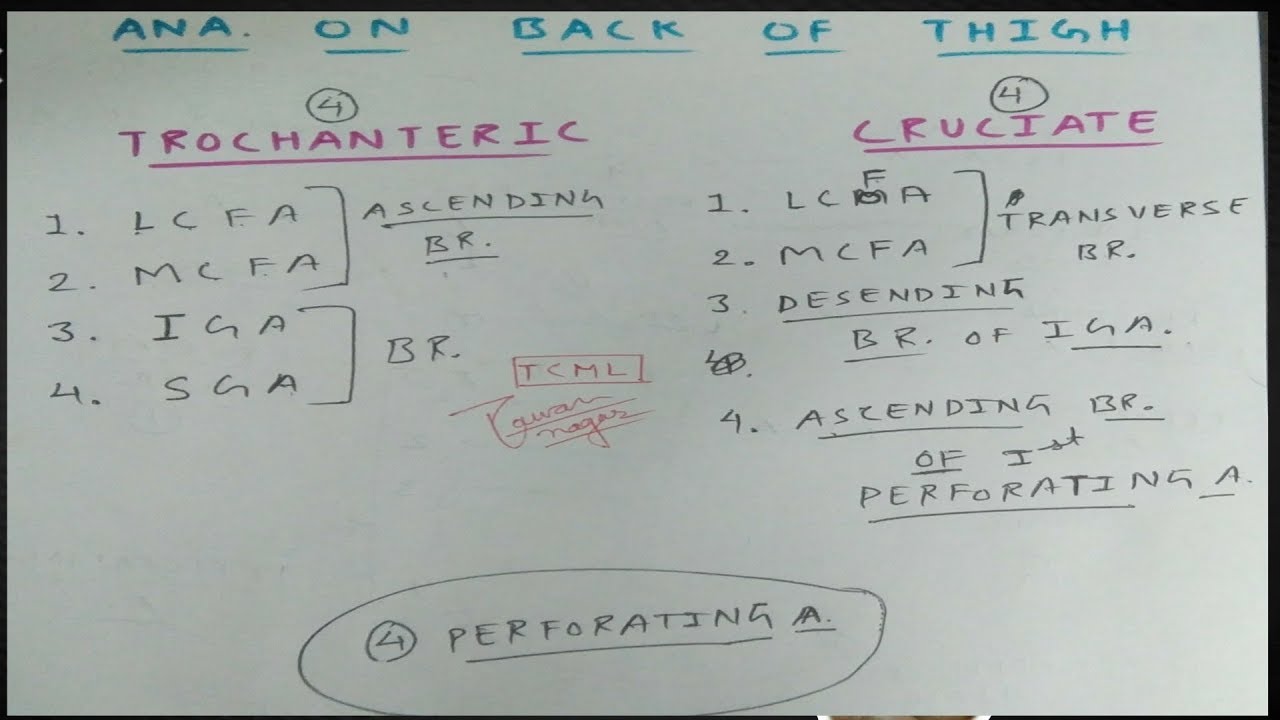 ANA. ON BACK OF THIGH
4
TROCHANTERIC
1. LCFA
2. MCFA
ASCENDING
BR.
3. IGA
4. SGA
BR.
TCML
4
CRUCIATE
1. LCFA
2. MCFA
TRANSVERSE
BR.
3. DESENDING
BR. OF IGA.
4. ASCENDING BR.
OF Ist
PERFORATING A.
4 PERFORATING A.